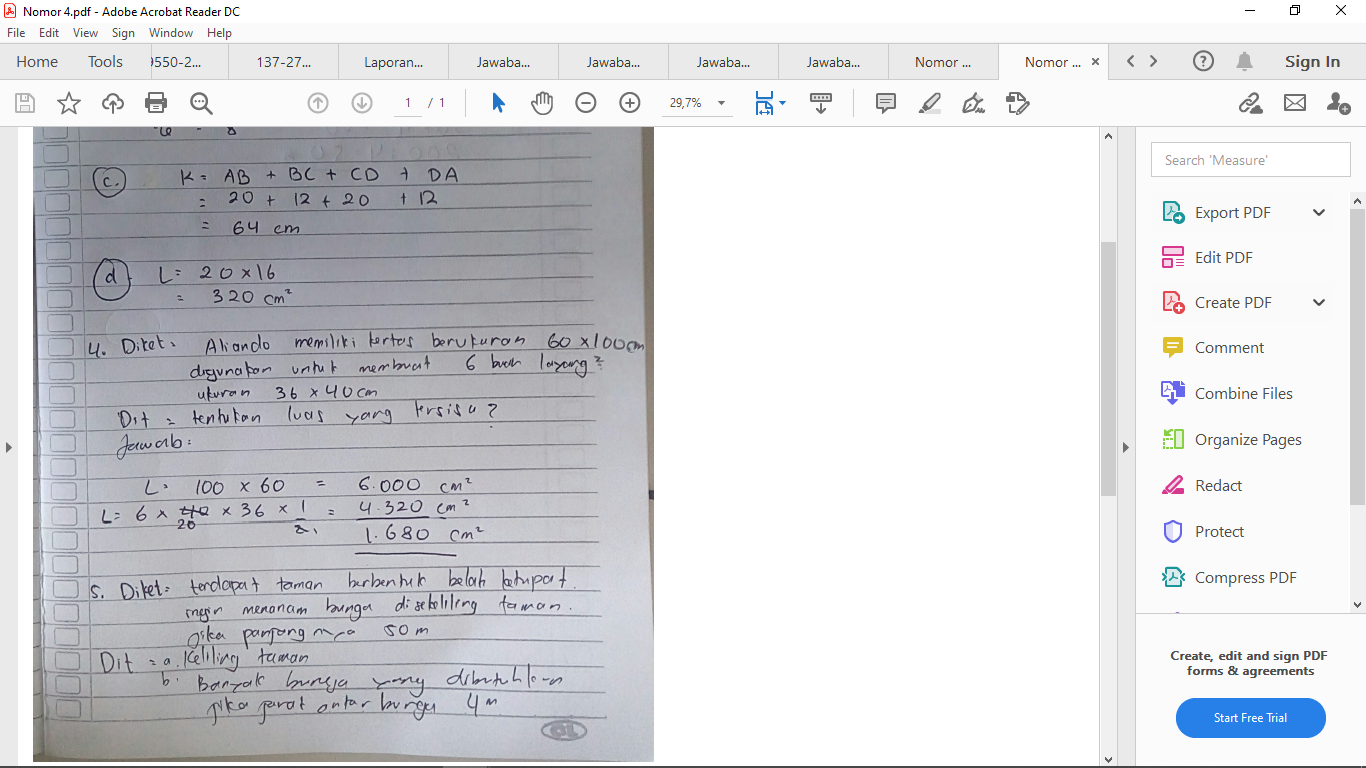 Nomor 4.pdf - Adobe Acrobat Reader DC
File Edit View Sign Window Help
Home Tools 9550-2... 137-27... Laporan... Jawaba... Jawaba... Jawaba... Jawaba... Nomor ... Nomor ... Sign In
1 / 1 29,7%
c. K = AB + BC + CD + DA
= 20 + 12 + 20 + 12
= 64 cm
d L = 20 x 16
= 320 cm²
4. Diket = Aliando memiliki kertas berukuran 60 x 100 cm
digunakan untuk membuat 6 buah layang²
ukuran 36 x 40 cm
Dit = tentukan luas yang tersisa?
Jawab:
L = 100 x 60 = 6.000 cm²
L = 6 x 40 x 36 x 1 = 4.320 cm²
20 2.
1.680 cm²
5. Diket = terdapat taman berbentuk belah ketupat.
ingin menanam bunga disekeliling taman.
jika panjang nya 50 m
Dit = a. Keliling taman
b. Banyak bunga yang dibutuhkan
jika jarak antar bunga 4 m
Search 'Measure'
Export PDF
Edit PDF
Create PDF
Comment
Combine Files
Organize Pages
Redact
Protect
Compress PDF
Create, edit and sign PDF
forms & agreements
Start Free Trial